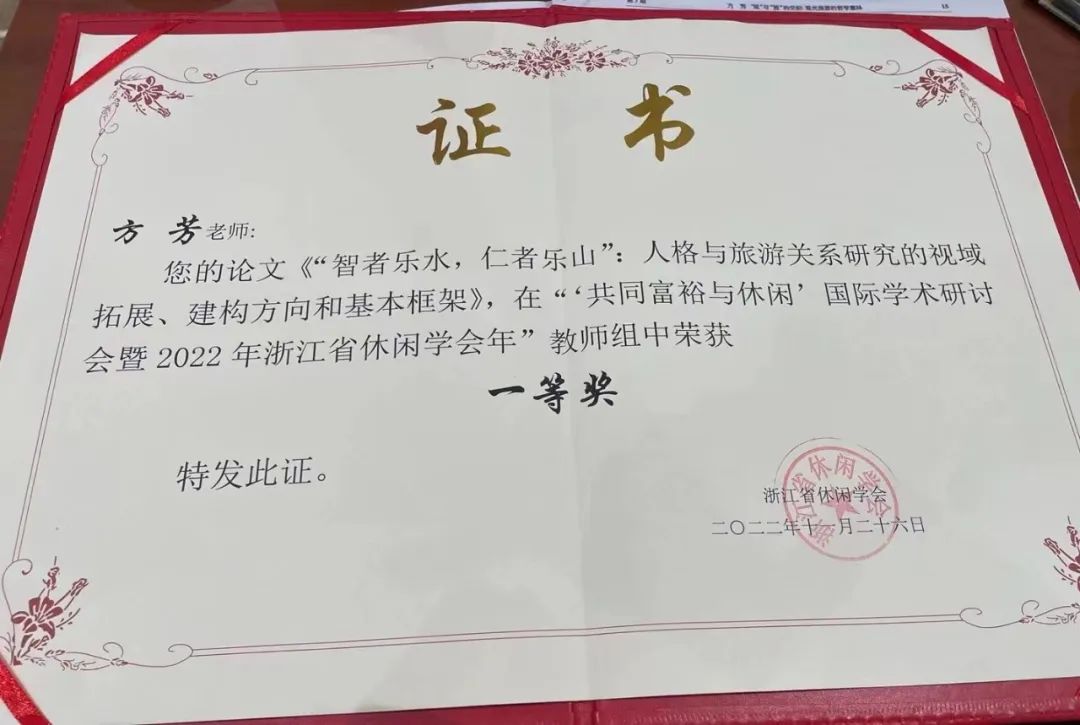 方 芳 15
证书
方 芳 老师:
您的论文《“智者乐水，仁者乐山”：人格与旅游关系研究的视域
拓展、建构方向和基本框架》，在“‘共同富裕与休闲’国际学术研讨
会暨 2022 年浙江省休闲学会年”教师组中荣获
一等奖
特发此证。
浙江省休闲学会
二〇二二年十一月二十六日
浙江省休闲学会